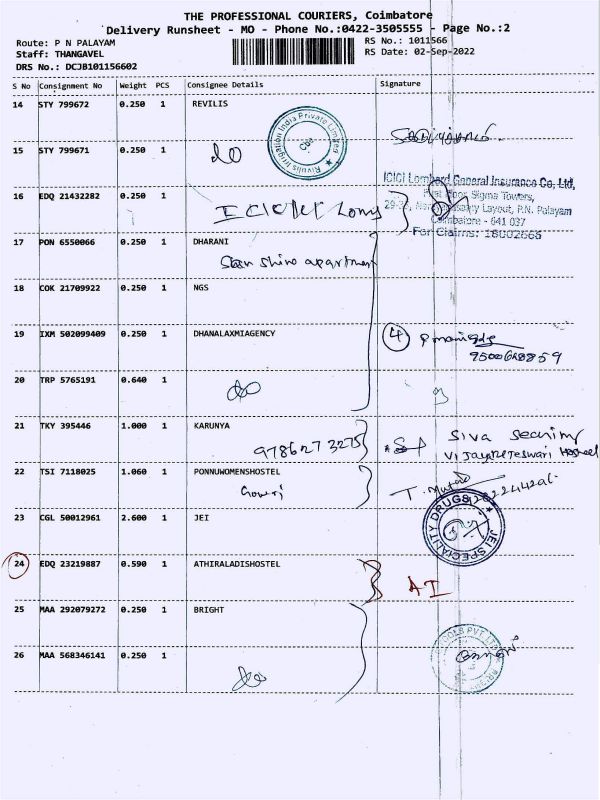 THE PROFESSIONAL COURIERS, Coimbatore
Delivery Runsheet - MO - Phone No.:0422-3505555 - Page No.:2
Route: P N PALAYAM
RS No.: 1011566
Staff: THANGAVEL
RS Date: 02-Sep-2022
DRS No.: DCJB101156602
S No Consignment No Weight PCS Consignee Details Signature
14 STY 799672 0.250 1 REVILIS
Rivulis Irrigation India Private Limited
15 STY 799671 0.250 1 do
ICICI Lombard General Insurance Co, Ltd,
16 EDQ 21432282 0.250 1 ICICI
First Floor, Sigma Towers,
Layout, P.N. Palayam
Coimbatore - 641 037
For Claims: 18002666
17 PON 6550066 0.250 1 DHARANI
Sun shine apartment
18 COK 21709922 0.250 1 NGS
19 IXM 502099409 0.250 1 DHANALAXMIAGENCY 4
20 TRP 5765191 0.640 1 do
21 TKY 395446 1.000 1 KARUNYA
9786273275
Siva
Hostel
22 TSI 7118025 1.060 1 PONNUWOMENSHOSTEL
Gowri
23 CGL 50012961 2.600 1 JEI
JEI SPECIALITY DRUGS
24 EDQ 23219887 0.590 1 ATHIRALADISHOSTEL
AI
25 MAA 292079272 0.250 1 BRIGHT
26 MAA 568346141 0.250 1 do
TOOLS PVT LTD